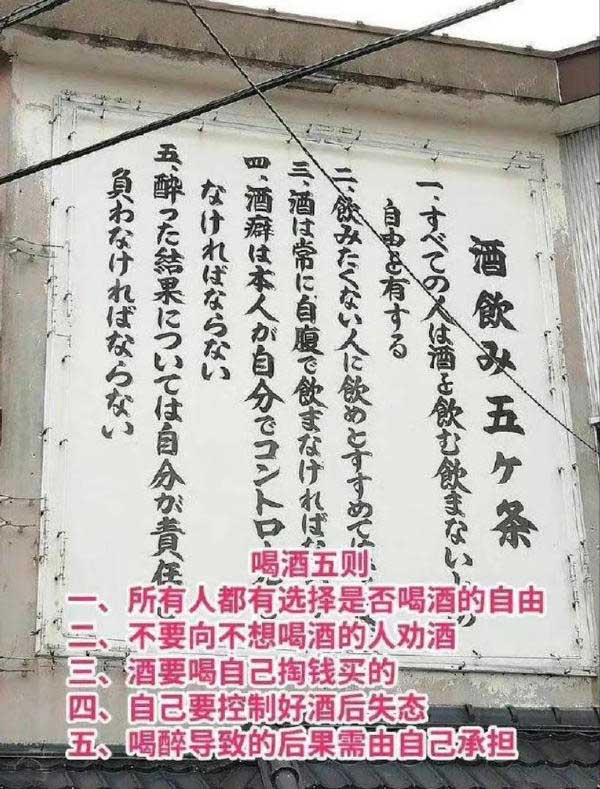 酒飲み五ヶ条
一、すべての人は酒を飲む飲まない
自由を有する
二、飲みたくない人に飲めとすすめては
三、酒は常に自腹で飲まなければ
四、酒癖は本人が自分でコントロー
なければならない
五、酔った結果については自分が責任
負わなければならない
喝酒五则
一、所有人都有选择是否喝酒的自由
二、不要向不想喝酒的人劝酒
三、酒要喝自己掏钱买的
四、自己要控制好酒后失态
五、喝醉导致的后果需由自己承担